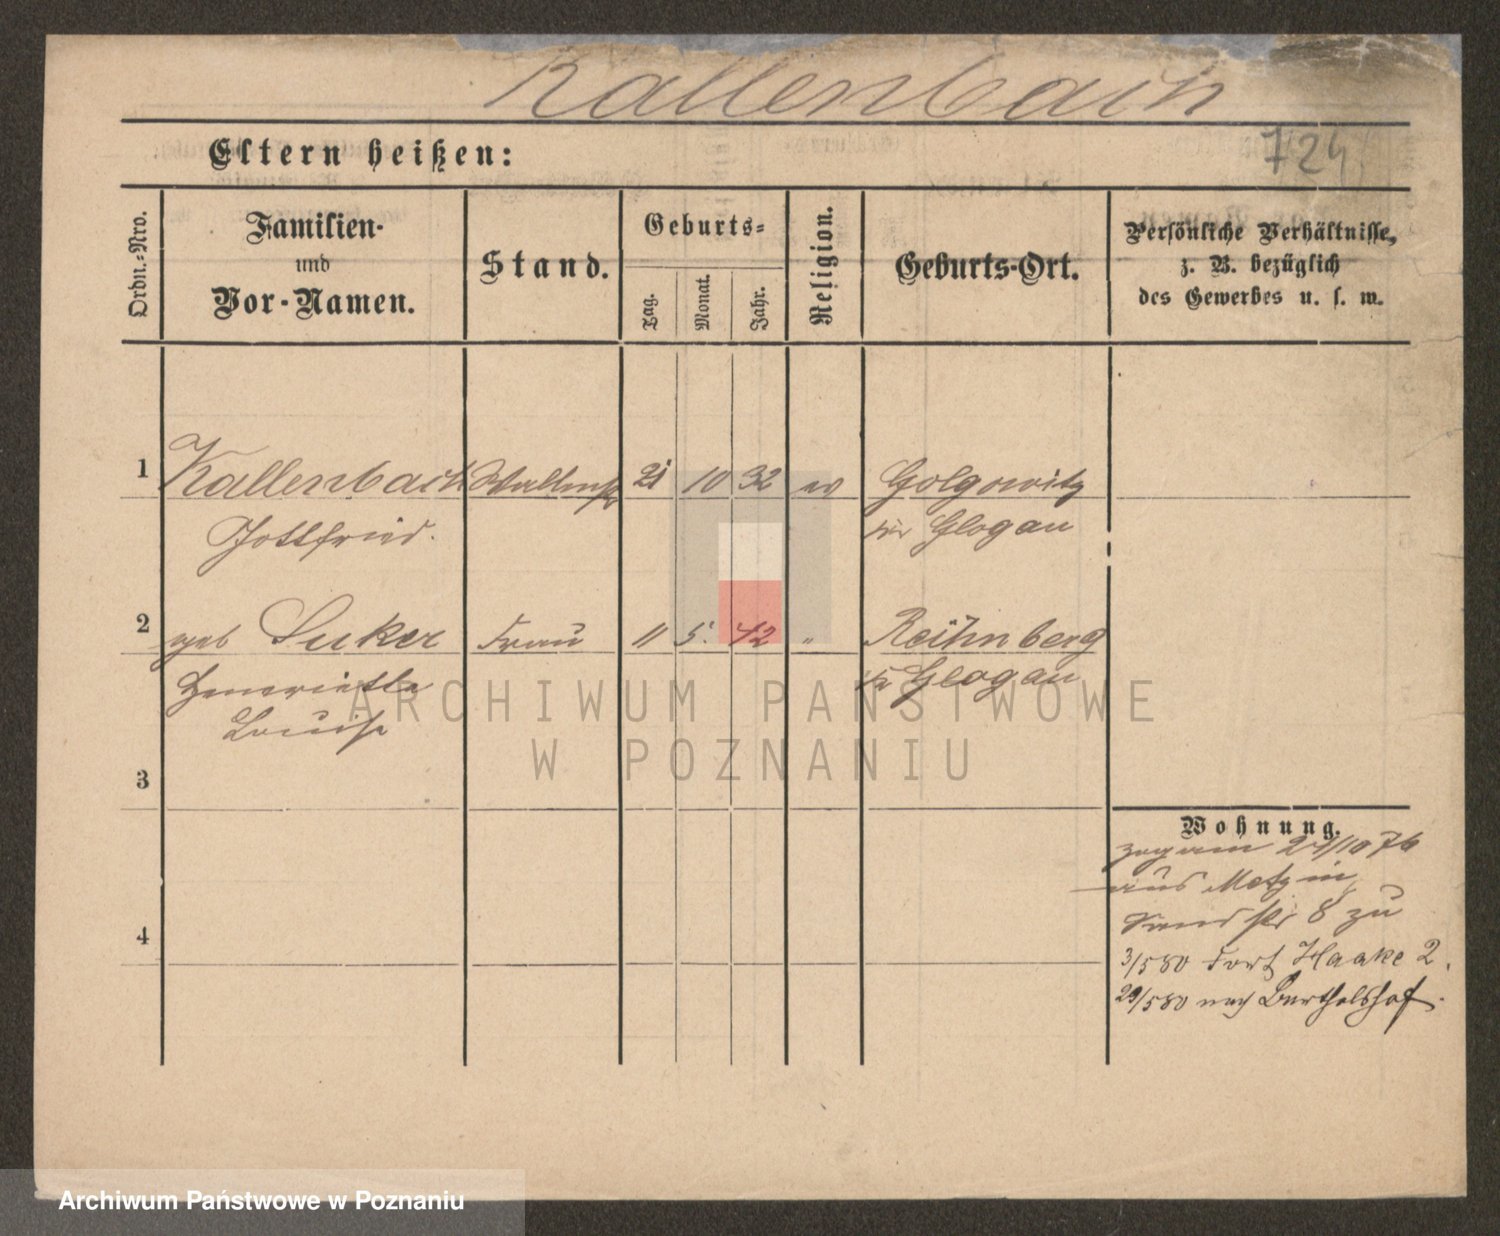 Kallenbach
724
Eltern heißen:
Ordn.-Nro.
Familien-
und
Vor-Namen.
Stand.
Geburts-
Tag.
Monat.
Jahr.
Religion.
Geburts-Ort.
Persönliche Verhältnisse,
z. B. bezüglich
des Gewerbes u. s. w.
1 Kallenbach 21 10 32 ev Golgowitz
Gottfried. Kr Glogau
2 geb Suker Frau 11 5. 42 " Reihnberg
Henriette Kr Glogau
Louise
3
4
Wohnung.
zog am 24/10 76
aus Metz in
Sand str 8 zu
3/5 80 Fort Haake 2.
29/5 80 nach Bartholshof.
ARCHIWUM PAŃSTWOWE
W POZNANIU
Archiwum Państwowe w Poznaniu